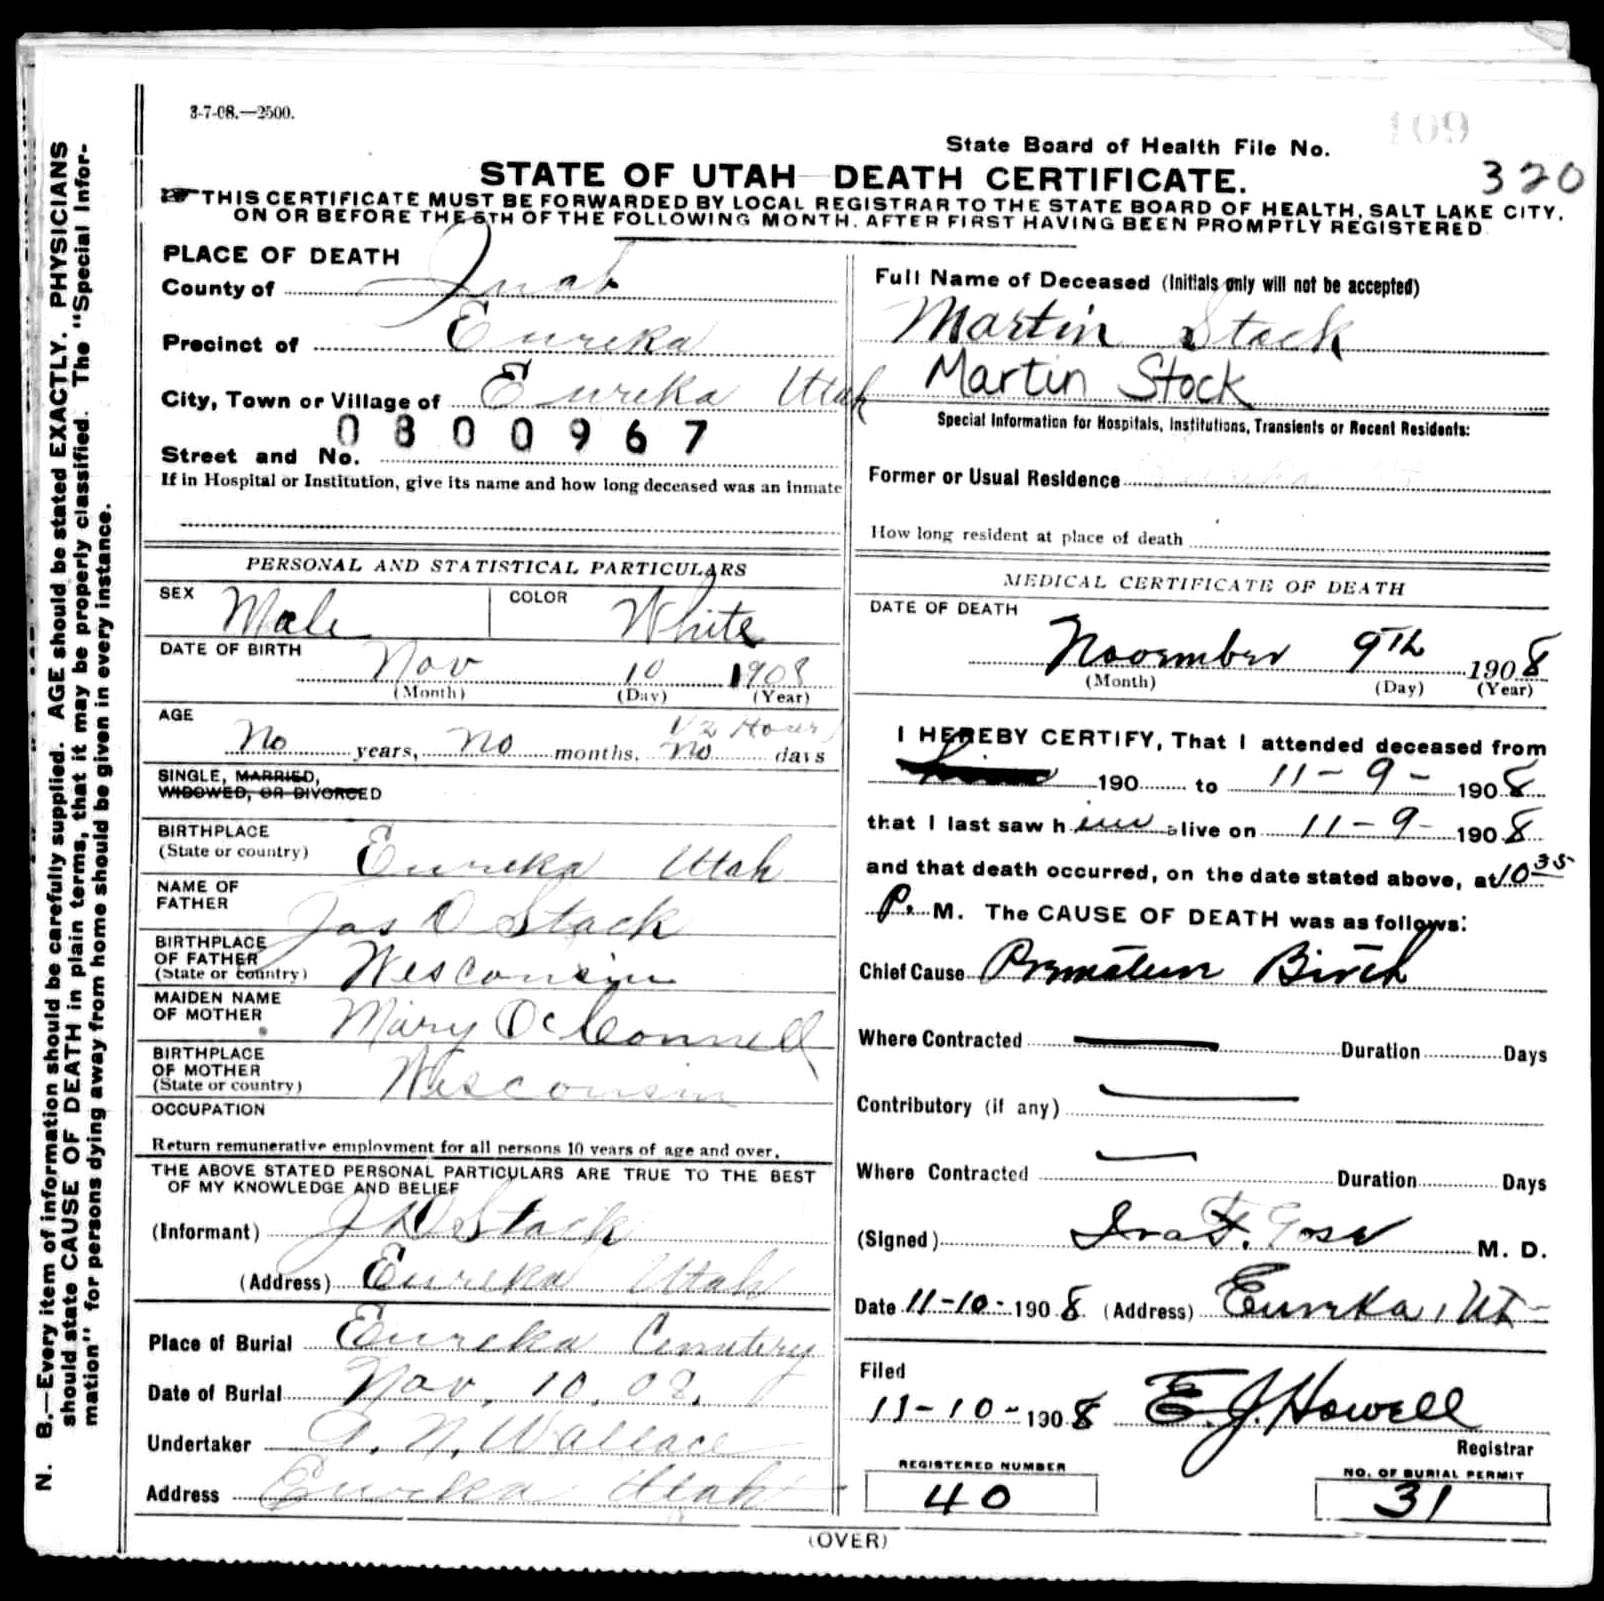 3-7-08.—2500.
109
State Board of Health File No.
320
STATE OF UTAH DEATH CERTIFICATE.
THIS CERTIFICATE MUST BE FORWARDED BY LOCAL REGISTRAR TO THE STATE BOARD OF HEALTH, SALT LAKE CITY,
ON OR BEFORE THE 5TH OF THE FOLLOWING MONTH. AFTER FIRST HAVING BEEN PROMPTLY REGISTERED
PLACE OF DEATH
County of Juab
Precinct of Eureka
City, Town or Village of Eureka Utah
0800967
Street and No.
If in Hospital or Institution, give its name and how long deceased was an inmate
PERSONAL AND STATISTICAL PARTICULARS
SEX Male COLOR White
DATE OF BIRTH
Nov 10 1908
(Month) (Day) (Year)
AGE
1/2 Hour
No years, No months, No days
SINGLE, MARRIED,
WIDOWED, OR DIVORCED
BIRTHPLACE
(State or country) Eureka Utah
NAME OF
FATHER Jas D Stack
BIRTHPLACE
OF FATHER
(State or country) Wesconsin
MAIDEN NAME
OF MOTHER Mary Oc Connell
BIRTHPLACE
OF MOTHER
(State or country) Wesconsin
OCCUPATION
Return remunerative employment for all persons 10 years of age and over.
THE ABOVE STATED PERSONAL PARTICULARS ARE TRUE TO THE BEST
OF MY KNOWLEDGE AND BELIEF
(Informant) J D Stack
(Address) Eureka Utah
Place of Burial Eureka Cemetery
Date of Burial Nov. 10. 08.
Undertaker A. N. Wallace
Address Eureka Utah
Full Name of Deceased (Initials only will not be accepted)
Martin Stack
Martin Stock
Special Information for Hospitals, Institutions, Transients or Recent Residents:
Former or Usual Residence
How long resident at place of death
MEDICAL CERTIFICATE OF DEATH
DATE OF DEATH
November 9TH 1908
(Month) (Day) (Year)
I HEREBY CERTIFY, That I attended deceased from
190 to 11-9- 1908
that I last saw him alive on 11-9- 1908
and that death occurred, on the date stated above, at 10 35
P. M. The CAUSE OF DEATH was as follows:
Chief Cause Premature Birth
Where Contracted Duration Days
Contributory (if any)
Where Contracted Duration Days
(Signed) Ira F. M. D.
Date 11-10- 1908 (Address) Eureka, Ut-
Filed
11-10- 1908 E. J. Howell
Registrar
REGISTERED NUMBER
40
NO. OF BURIAL PERMIT
31
(OVER)
N. B.—Every item of information should be carefully supplied. AGE should be stated EXACTLY. PHYSICIANS
should state CAUSE OF DEATH in plain terms, that it may be properly classified. The "Special Infor-
mation" for persons dying away from home should be given in every instance.